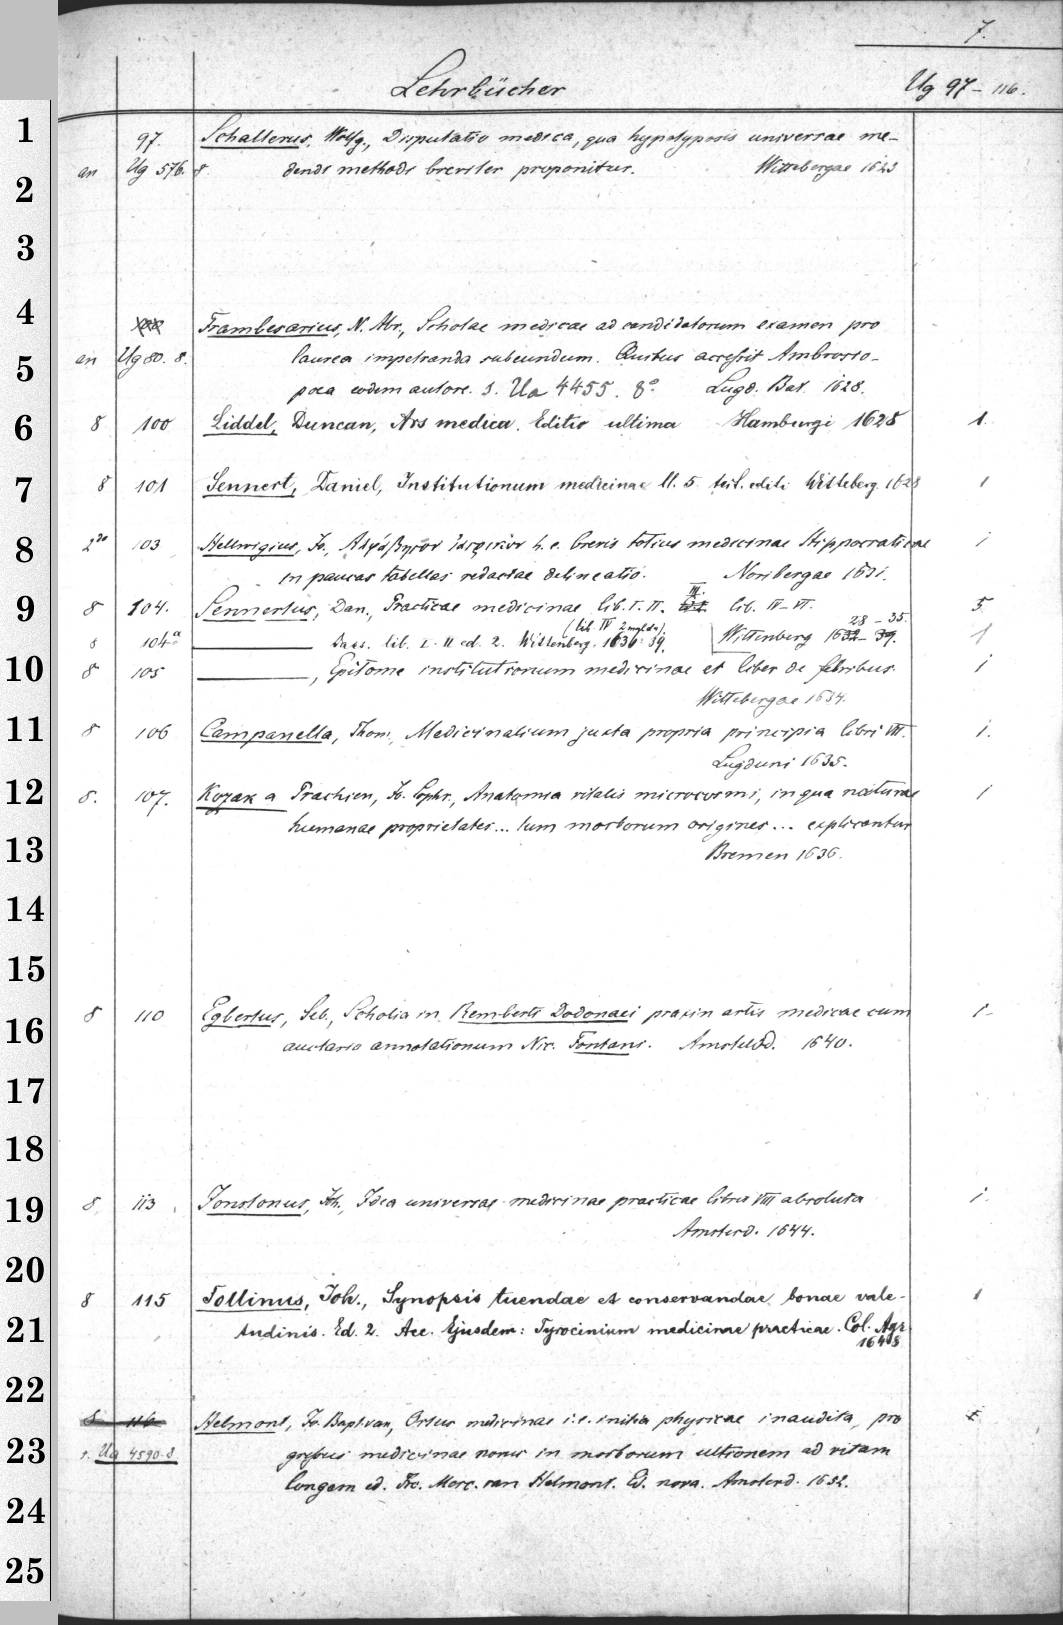 7.
Lehrbücher Ug 97 – 116.
1
97. Schallerus, Wolfg., Disputatio medica, qua hypotyposis universae me-
2
an Ug 576. 8. dendi methodi breviter proponitur. Wittebergae 1623
3
4
Frambesarius, N. Abr., Scholae medicae ad candidatorum examen pro
5
an Ug 80. 8. laurea impetranda subeundum. Quibus accessit Ambrosio-
poea eodem autore. s. Ua 4455. 8° Lugd. Bat. 1628.
6
8 100 Liddel, Duncan, Ars medica. Editio ultima Hamburgi 1628 1.
7
8 101 Sennert, Daniel, Institutionum medicinae ll. 5 editi Witteberg. 1628 1
8
2° 103 Hellwigius, Jo., h. e. brevis totius medicinae Hippocraticae 1
in paucas tabellas redactae delineatio. Noribergae 1631.
9
8 104. Sennertus, Dan., Practicae medicinae lib. I. II. III. lib. IV–VI. 5
28 – 35.
8 104a Dass. lib. I. II ed. 2. Wittenberg. 1636–39. (lib IV 2 mal da) Wittenberg 1632–39. 1
10
8 105 , Epitome institutionum medicinae et liber de febribus. 1
Wittebergae 1634.
11
8 106 Campanella, Thom., Medicinalium juxta propria principia libri VII. 1.
Lugduni 1635.
12
8. 107. Kozak a Prachien, Jo. Sophr., Anatomia vitalis microcosmi, in qua naturae 1
humanae proprietates... tum morborum origines... explicantur
13
Bremen 1636.
14
15
16
8 110 Egbertus, Seb., Scholia in Remberti Dodonaei praxin artis medicae cum 1
auctario annotationum Nic. Fontani. Amstelod. 1640.
17
18
19
8 113 Jonstonus, Joh., Idea universae medicinae practicae libris VIII absoluta 1.
Amsterd. 1644.
20
8 115 Tollinus, Joh., Synopsis tuendae et conservandae bonae vale- 1
21
tudinis. Ed. 2. Acc. Ejusdem: Tyrocinium medicinae practicae. Col. Agr.
1648
22
8 116 Helmont, Jo. Bapt. van, Ortus medicinae i. e. initia physicae inaudita, pro
23
s. Ua 4590. 8. gressus medicinae novus in morborum ultionem ad vitam
longam ed. Fro. Merc. van Helmont. Ed. nova. Amsterd. 1652.
24
25